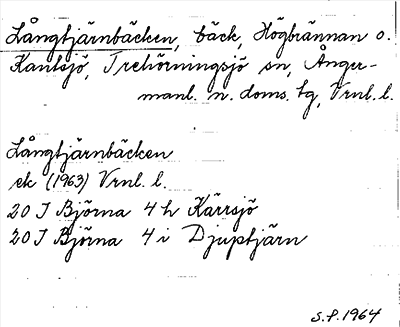 Långtjärnbäcken, bäck, Högbrännan o.
Kantsjö, Trehörningsjö sn, Ånger-
manl. n. doms. tg, Vrnl. l.
Långtjärnbäcken
ek (1963) Vrnl. l.
20 J Björna 4 h Kärrsjö
20 J Björna 4 i Djuptjärn
S.F. 1964